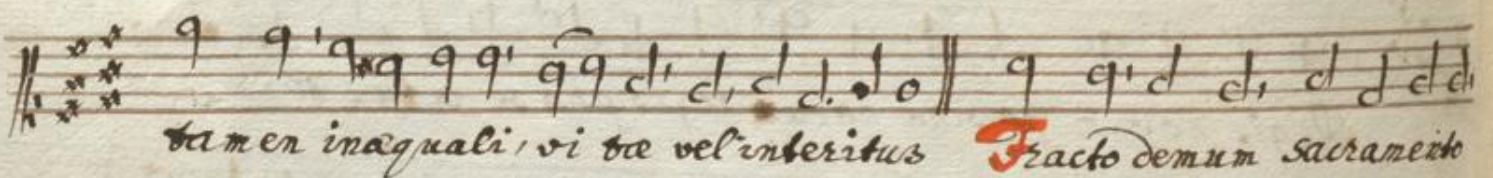 tamen inæquali, vitæ vel interitus Fracto demum sacramento